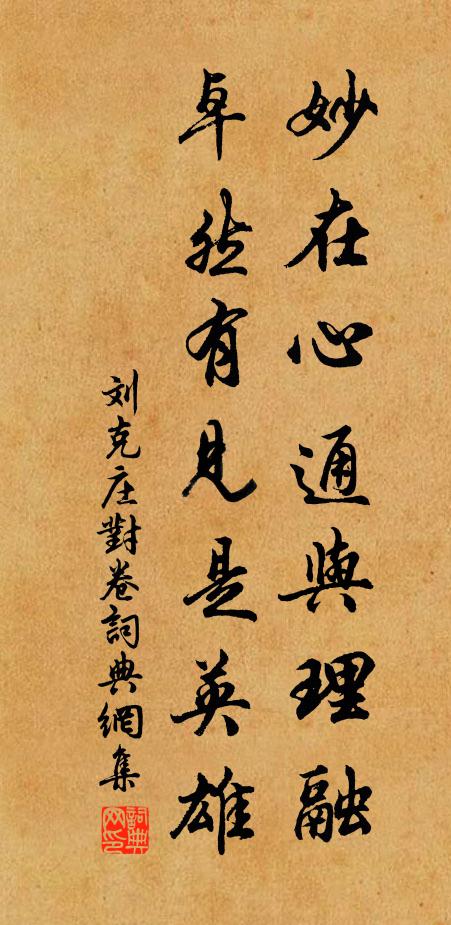 妙在心通與理融
卓然有見是英雄
刘克庄對卷詞典網集
詞典
网印